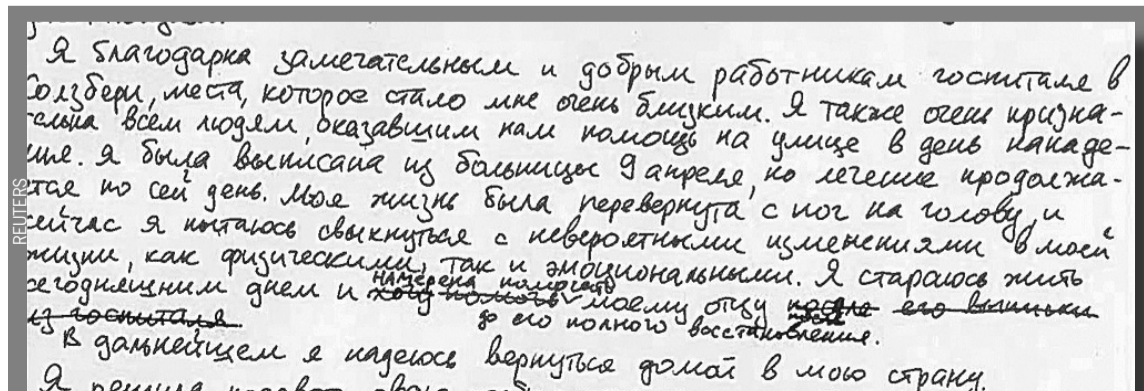 Я благодарна замечательным и добрым работникам госпиталя в
Солзбери, места, которое стало мне очень близким. Я также очень призна-
тельна всем людям, оказавшим нам помощь на улице в день нападе-
ния. Я была выписана из больницы 9 апреля, но лечение продолжа-
ется по сей день. Моя жизнь была перевернута с ног на голову, и
сейчас я пытаюсь свыкнуться с невероятными изменениями в моей
жизни, как физическими, так и эмоциональными. Я стараюсь жить
намерена помогать
сегодняшним днем и хочу помочь моему отцу после его выписки
до его полного восстановления.
из госпиталя.
В дальнейшем я надеюсь вернуться домой в мою страну.
Я решила
REUTERS